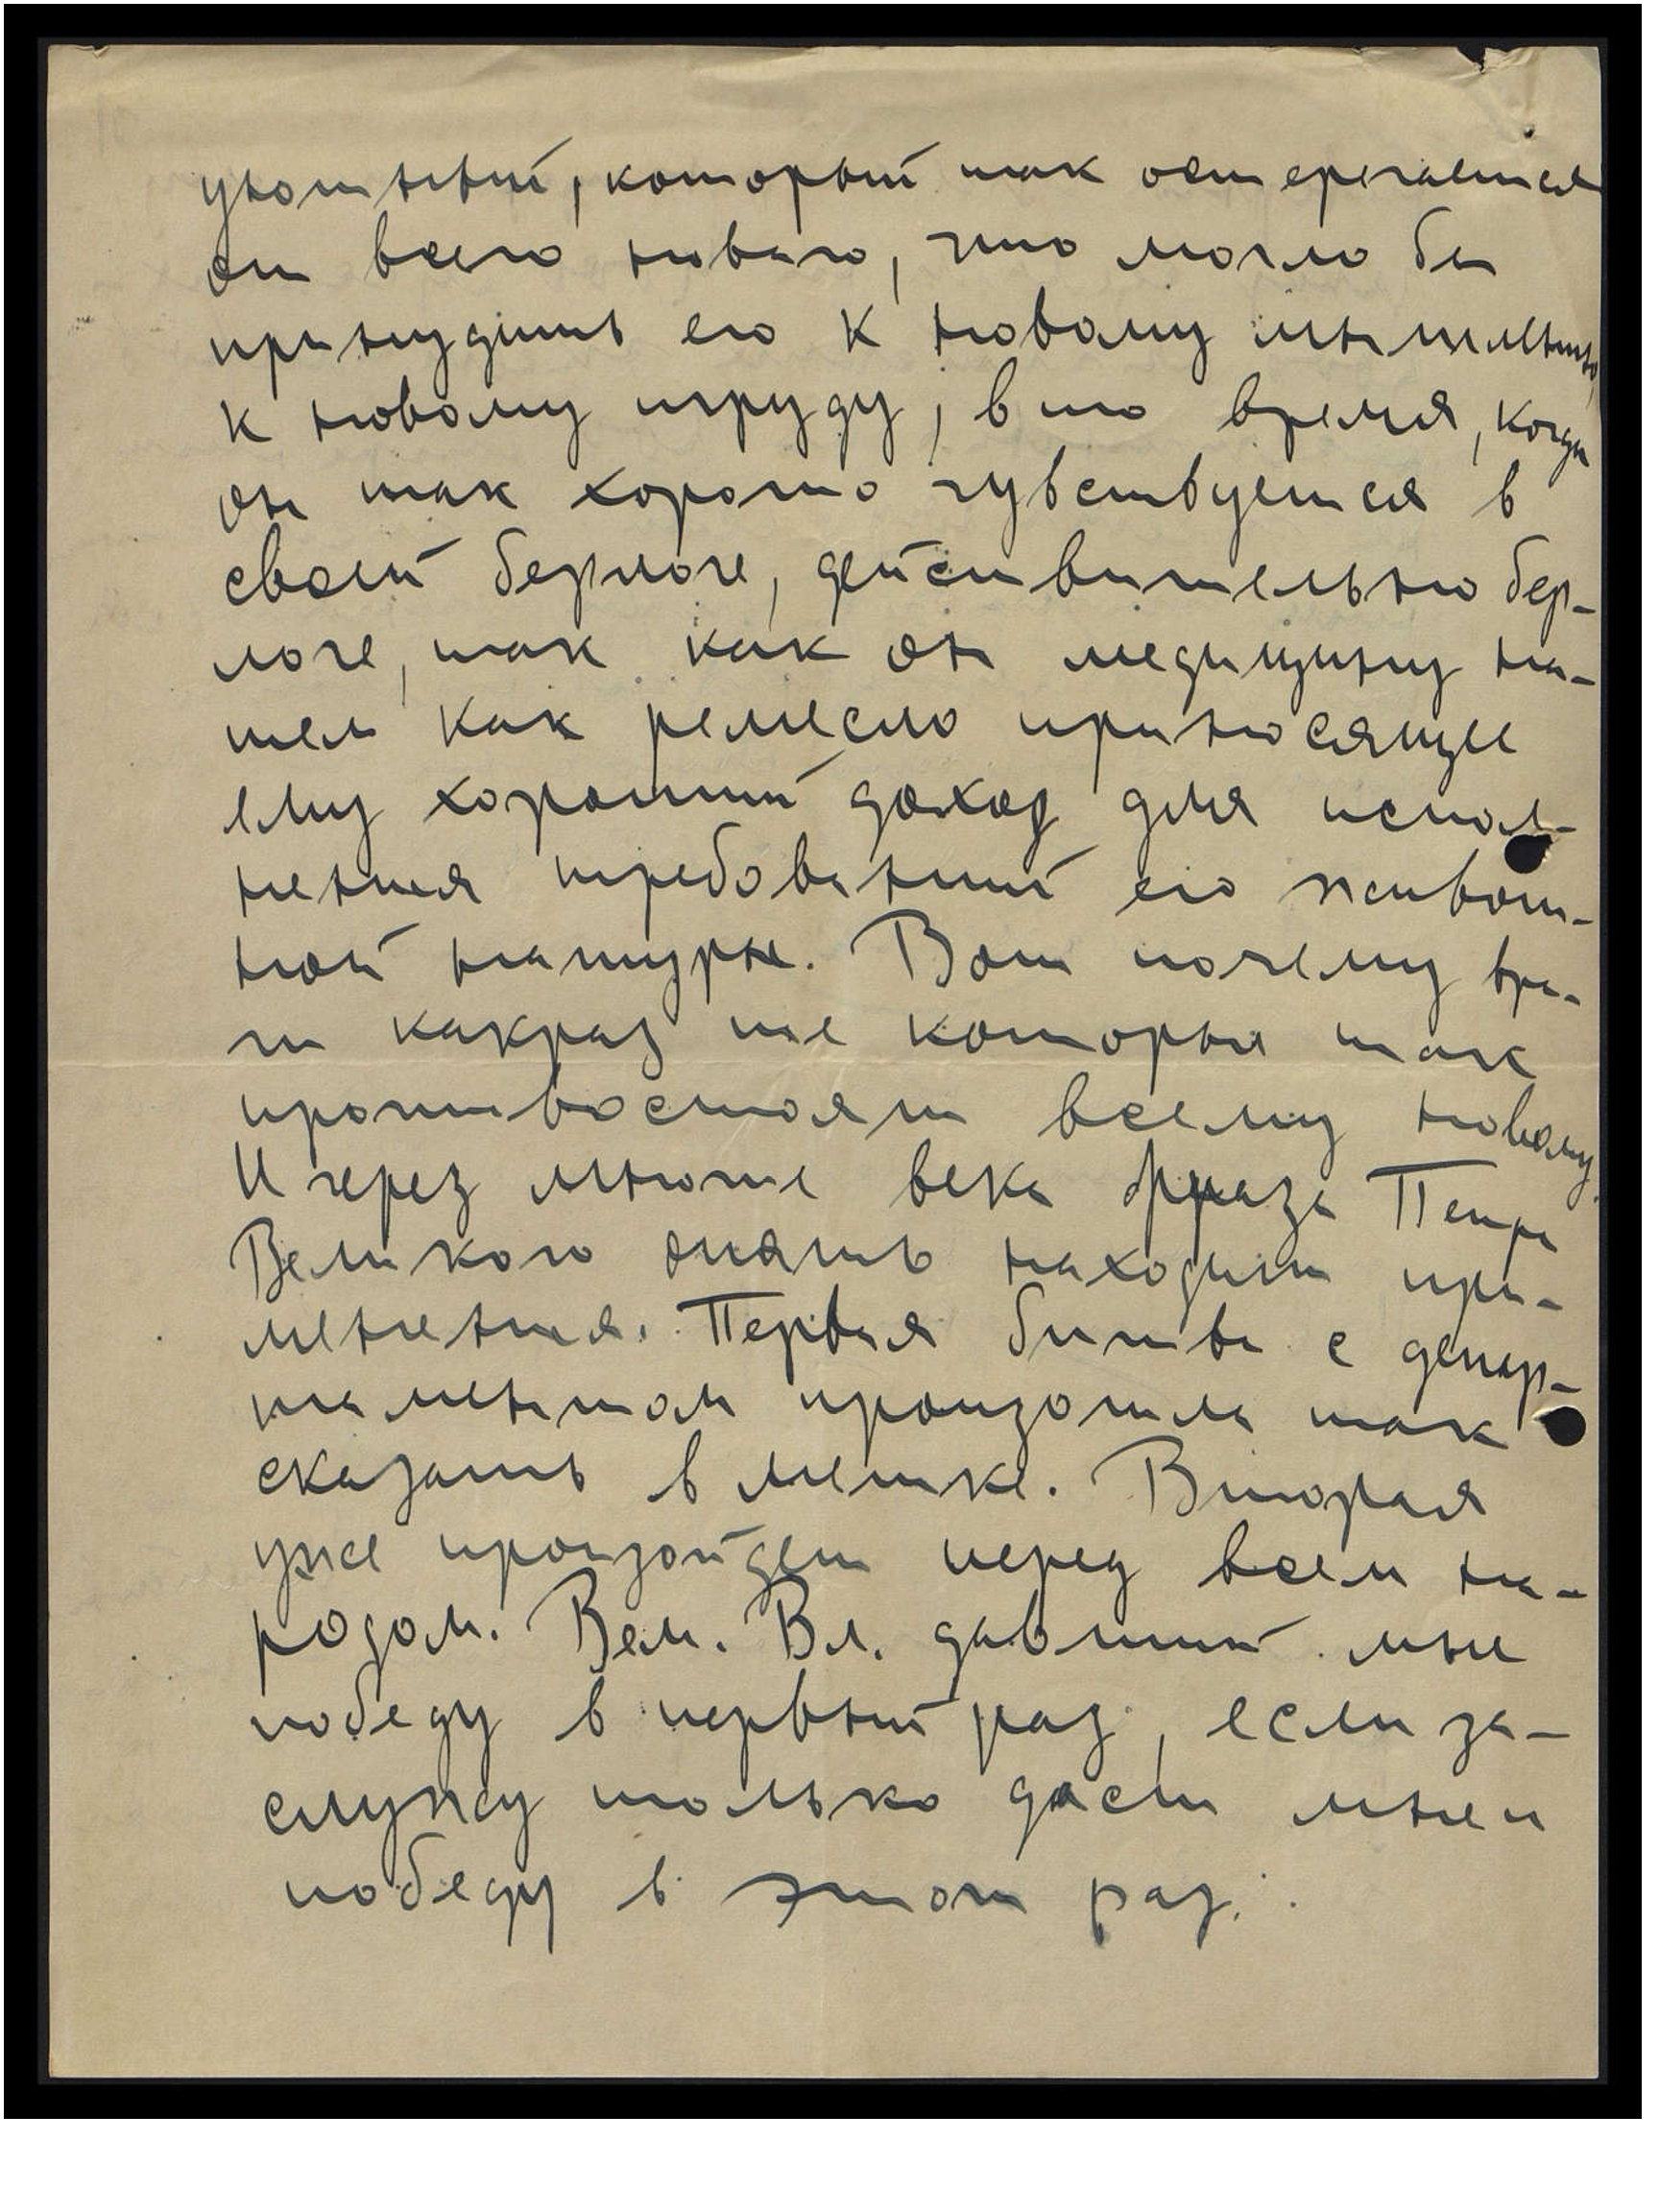 уютный, который так остерегается
от всего новаго, что могло бы
принудить его к новому мышлению,
к новому труду, в то время, когда
он так хорошо чувствуется в
своей берлоге, действительно бер-
логе, так как он медицину на-
шел как ремесло приносящее
ему хороший доход для испол-
нения требований его живот-
ной натуры. Вот почему вра-
чи какраз те которые так
противостоят всему новому.
И через многие века фраза Петра
Великого опять находит при-
менения. Первая битва с депар-
таментом произошла так
сказать в мешке. Вторая
уже произойдет перед всем на-
родом. Вел. Вл. давший мне
победу в первый раз, если за-
служу только даст мне и
победу в этот раз.